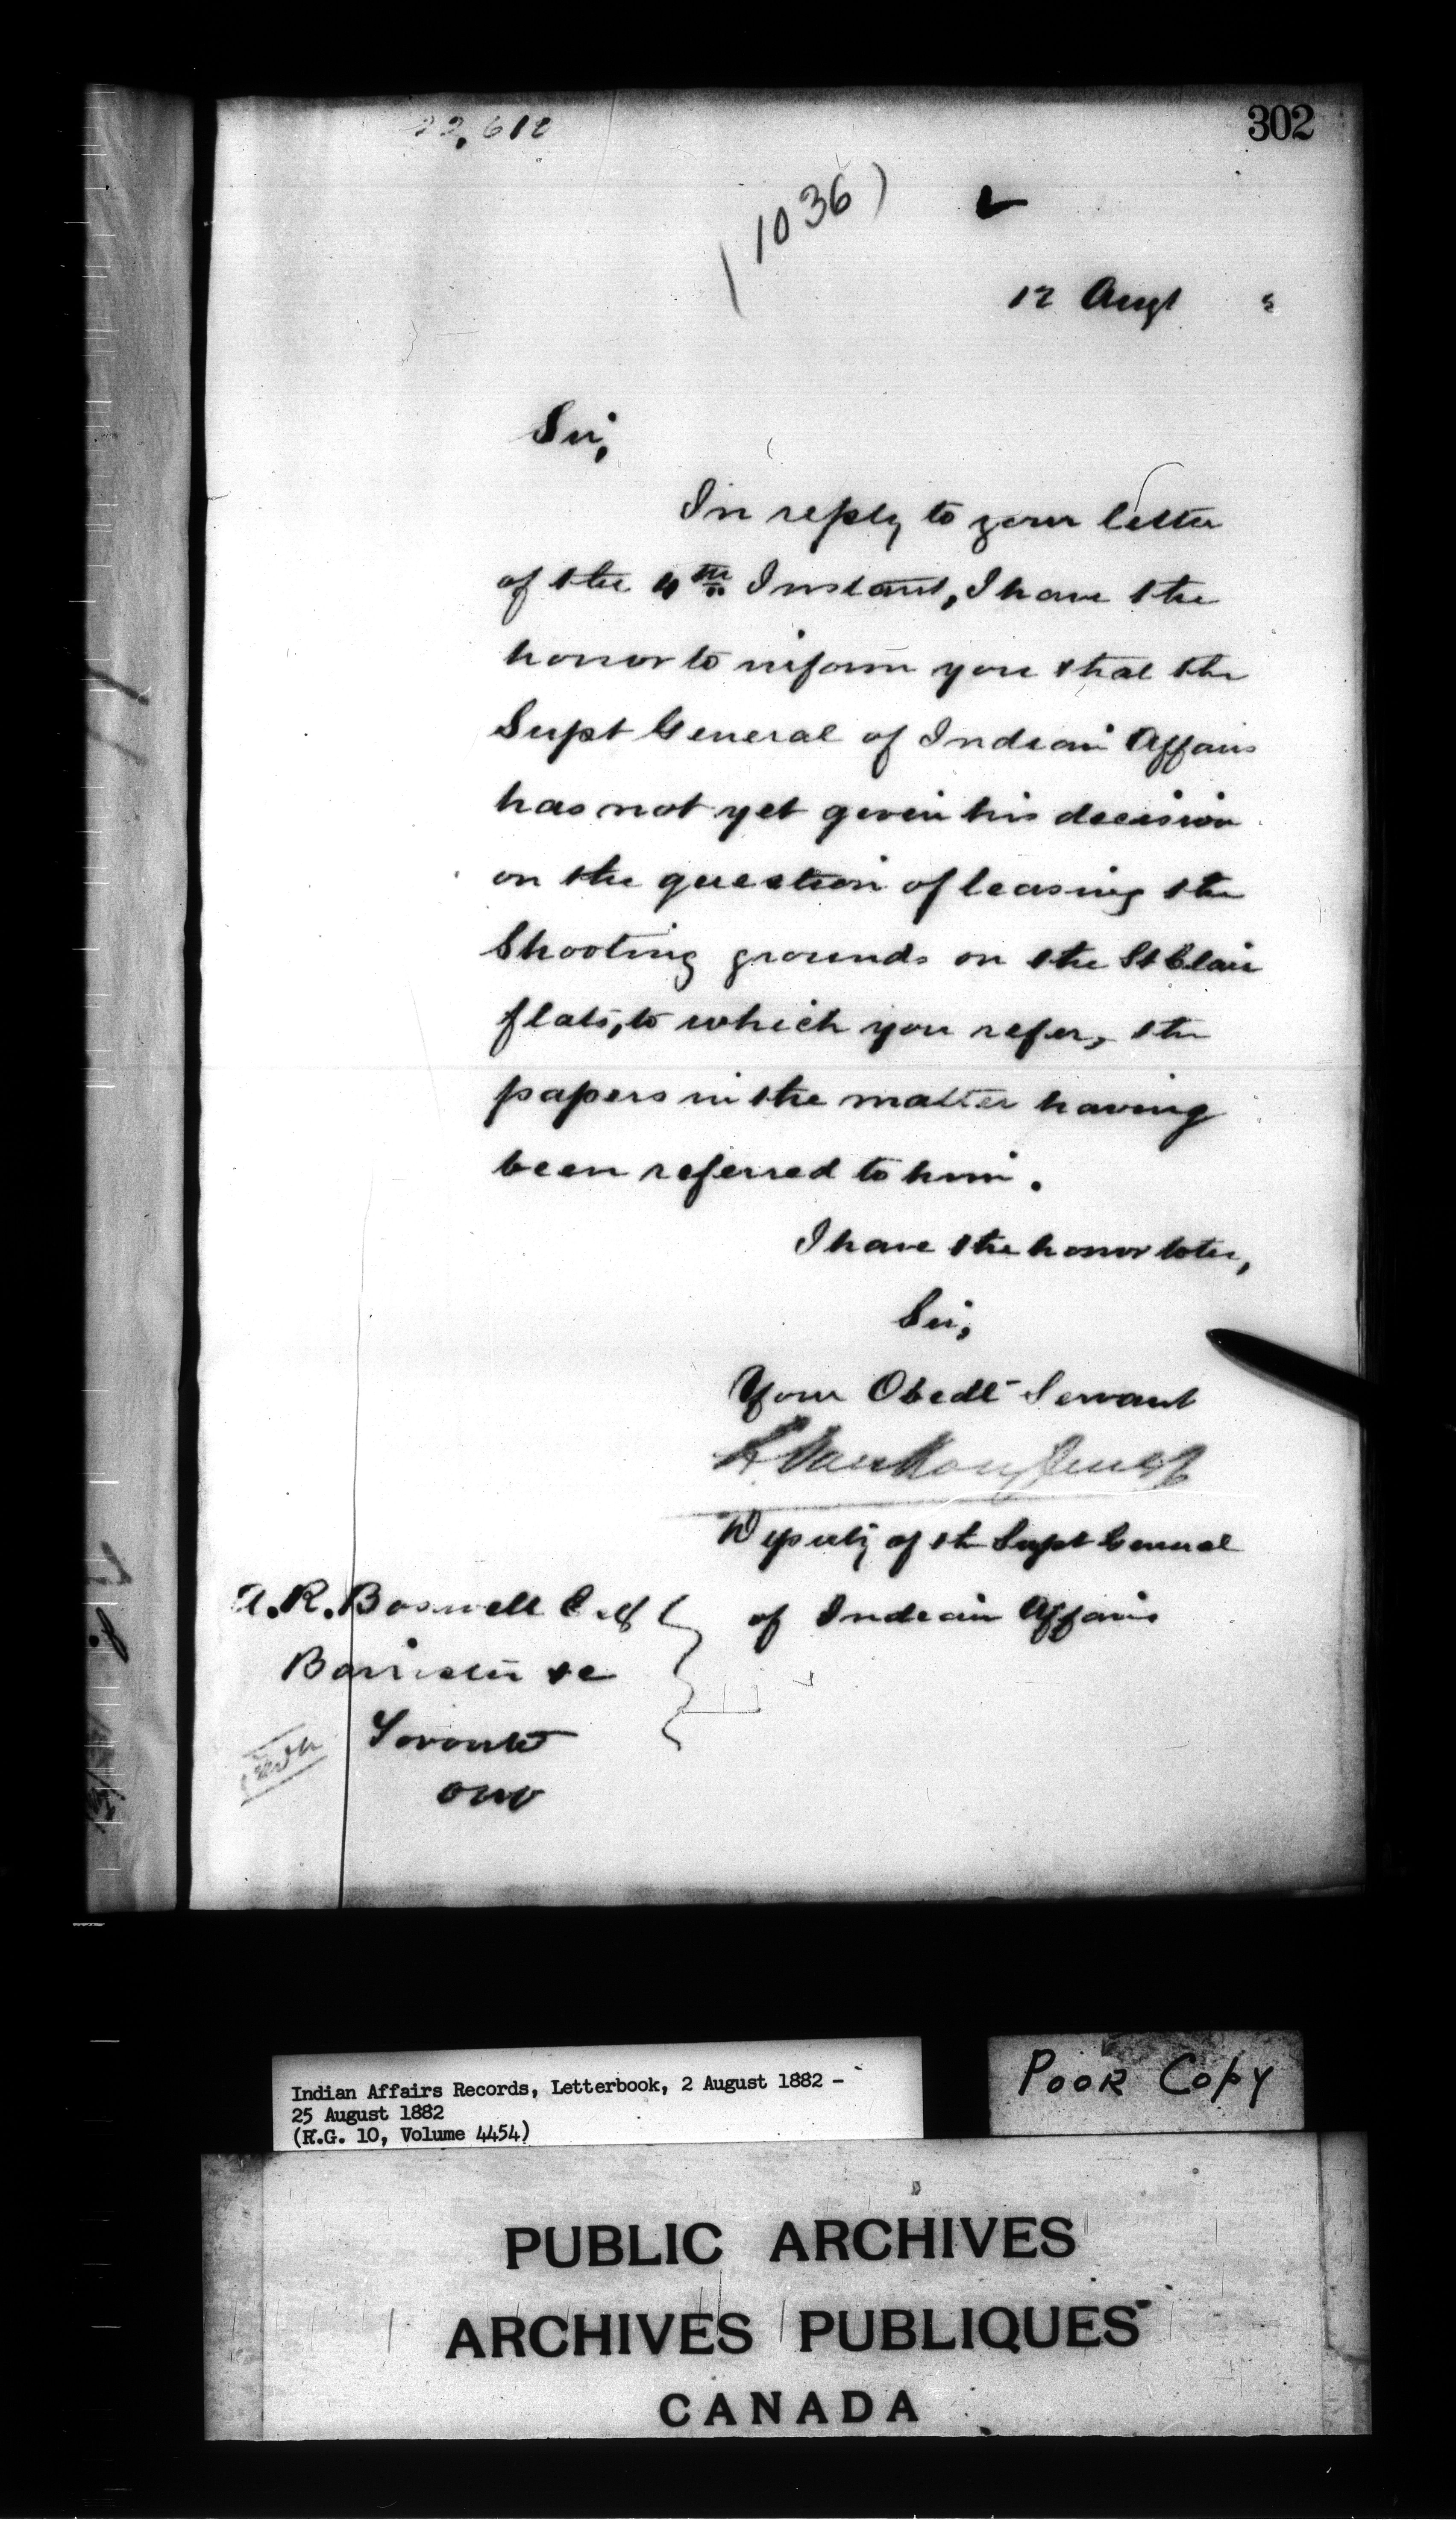 302
22,612
(1036)
12 Augt
Sir,
In reply to your letter
of the 4th Instant, I have the
honor to inform you that the
Supt General of Indian Affairs
has not yet given his decision
on the question of leasing the
Shooting grounds on the St Clair
flats, to which you refer, the
papers in the matter having
been referred to him.
I have the honor to be,
Sir,
Your Obedt Servant
L. VanKoughnet
Deputy of the Supt General
of Indian Affairs
A. R. Boswell Esq
Barrister &c
Toronto
Ont
Indian Affairs Records, Letterbook, 2 August 1882 -
25 August 1882
(R.G. 10, Volume 4454)
POOR COPY
PUBLIC ARCHIVES
ARCHIVES PUBLIQUES
CANADA